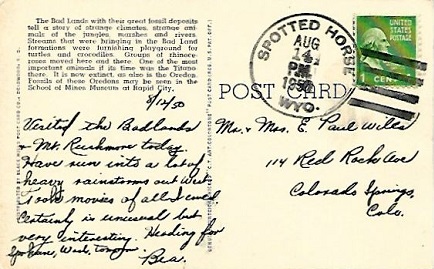 The Bad Lands with their great fossil deposits
tell a story of strange climates, strange ani-
mals of the jungles, marshes and rivers.
Streams that were bringing in the Bad Land
formations were furnishing playground for
turtles and crocodiles. Groups of rhinoce-
roses moved here and there. One of the most
important animals if it lives was the Titano-
there. It is now extinct, as also is the Oredon.
Fossils of these Oredons may be seen in the
School of Mines Museum at Rapid City.
8/12/50
Visited the Badlands
& Mt. Rushmore today.
Have run into a lot of
heavy rainstorms out West
Took movies of all I could
Certainly is unusual but
very interesting. Heading for
Spokane, Wash.
Bea.
SPOTTED HORSE
AUG
PM
1950
WYO.
UNITED
STATES
POSTAGE
1 CENT
POST CARD
Mr. & Mrs. E. Paul Wills
114 Red Rock Ave
Colorado Springs,
Colo.